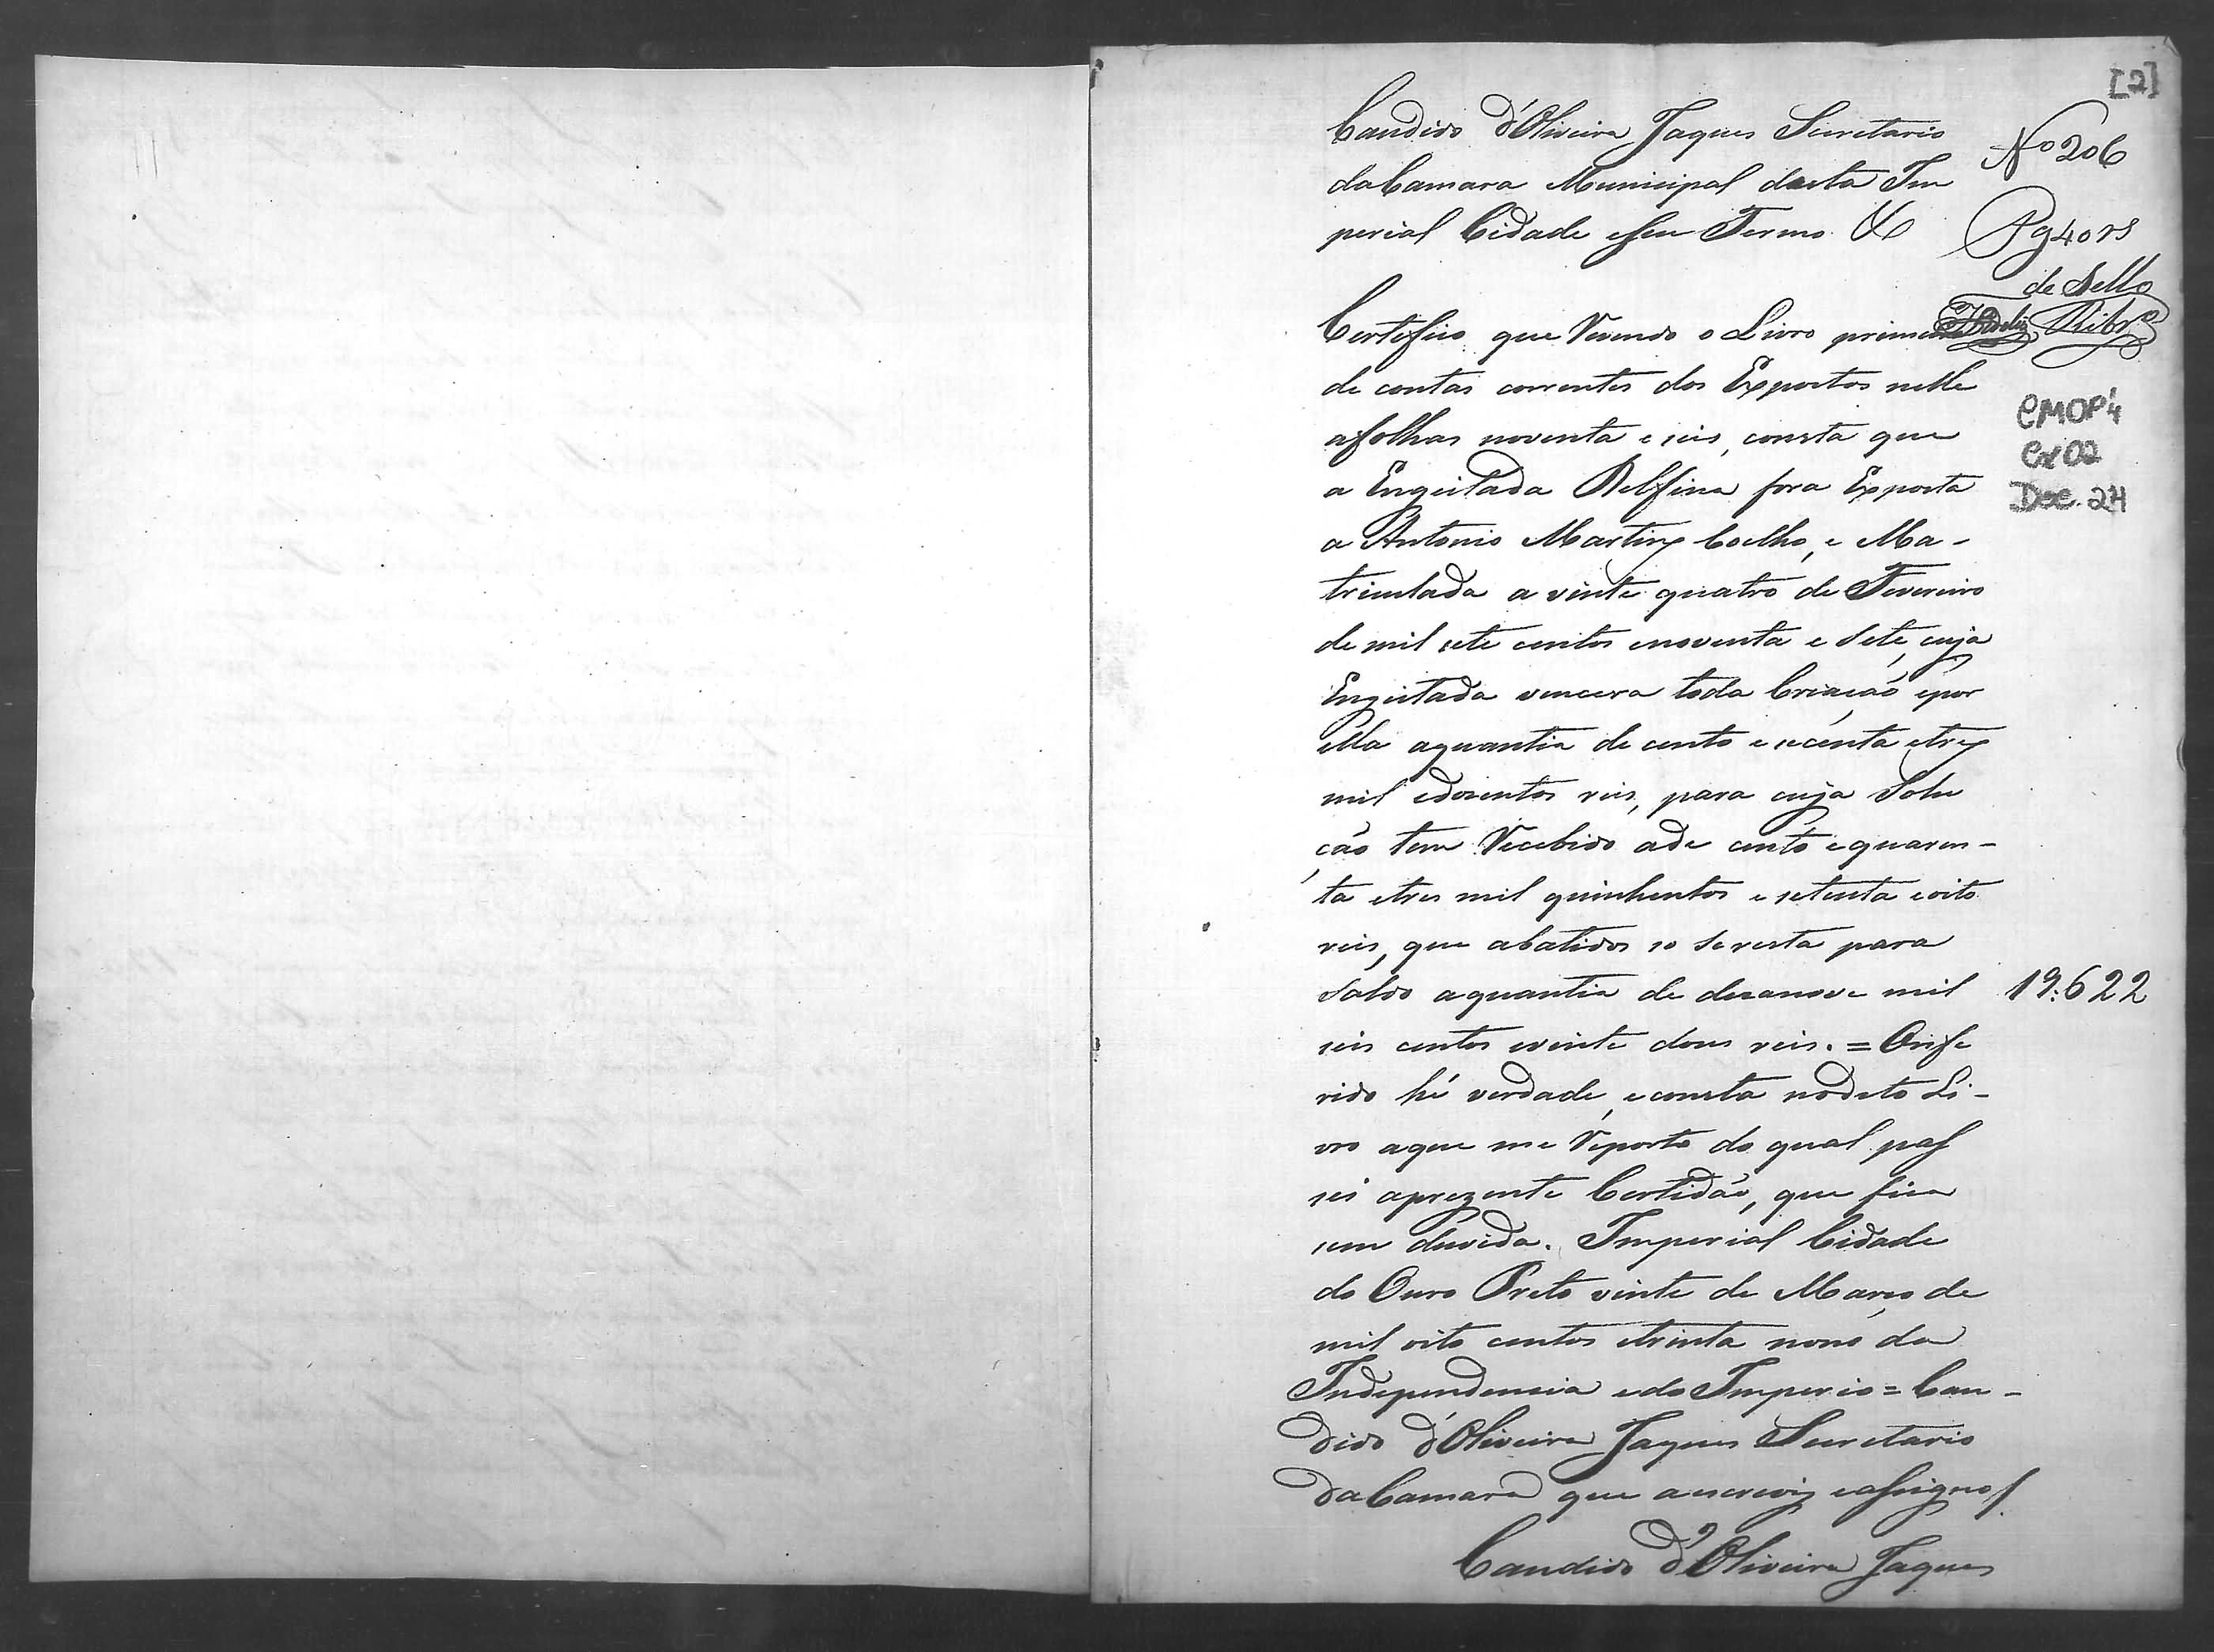 [2]
Candido d'Oliveira Jaques Secretario
da Camara Municipal desta Im
perial Cidade eSeu Termo &
No 206
Pg 40 rs
de Sello
Ribro
CMOP 4
Cx 02
Doc. 24
Certefico que Vevendo o Livro primeiro
de contas correntes dos Expostos nelle
afolhas noventa e seis, consta que
a Engeitada Delfina fora Exposta
a Antonio Martins Coelho, e Ma-
triculada a vinte quatro de Fevereiro
de mil sete centos enoventa e Sete, cuja
Engeitada vencera toda Criação epor
ella aquantia de cento e secenta etres
mil eduzentos reis, para cuja Solu
ção tem Vecebido ade cento e quaren-
ta etres mil quinhentos e setenta eoito
reis, que abatidos so Se resta para
Saldo aquantia de dezanove mil
19:622
seis centos evinte dous reis. = O refe
rido hé verdade, e consta no dito Li-
vro aque me Veporto do qual pas
sei aprezente Certidão, que fica
sem duvida. Imperial Cidade
do Ouro Preto vinte de Março de
mil oito centos etrinta nono da
Independencia edo Imperio = Can-
dido d'Oliveira Jaques Secretario
da Camara que aescrevi eassignei
Candido d'Oliveira Jaques